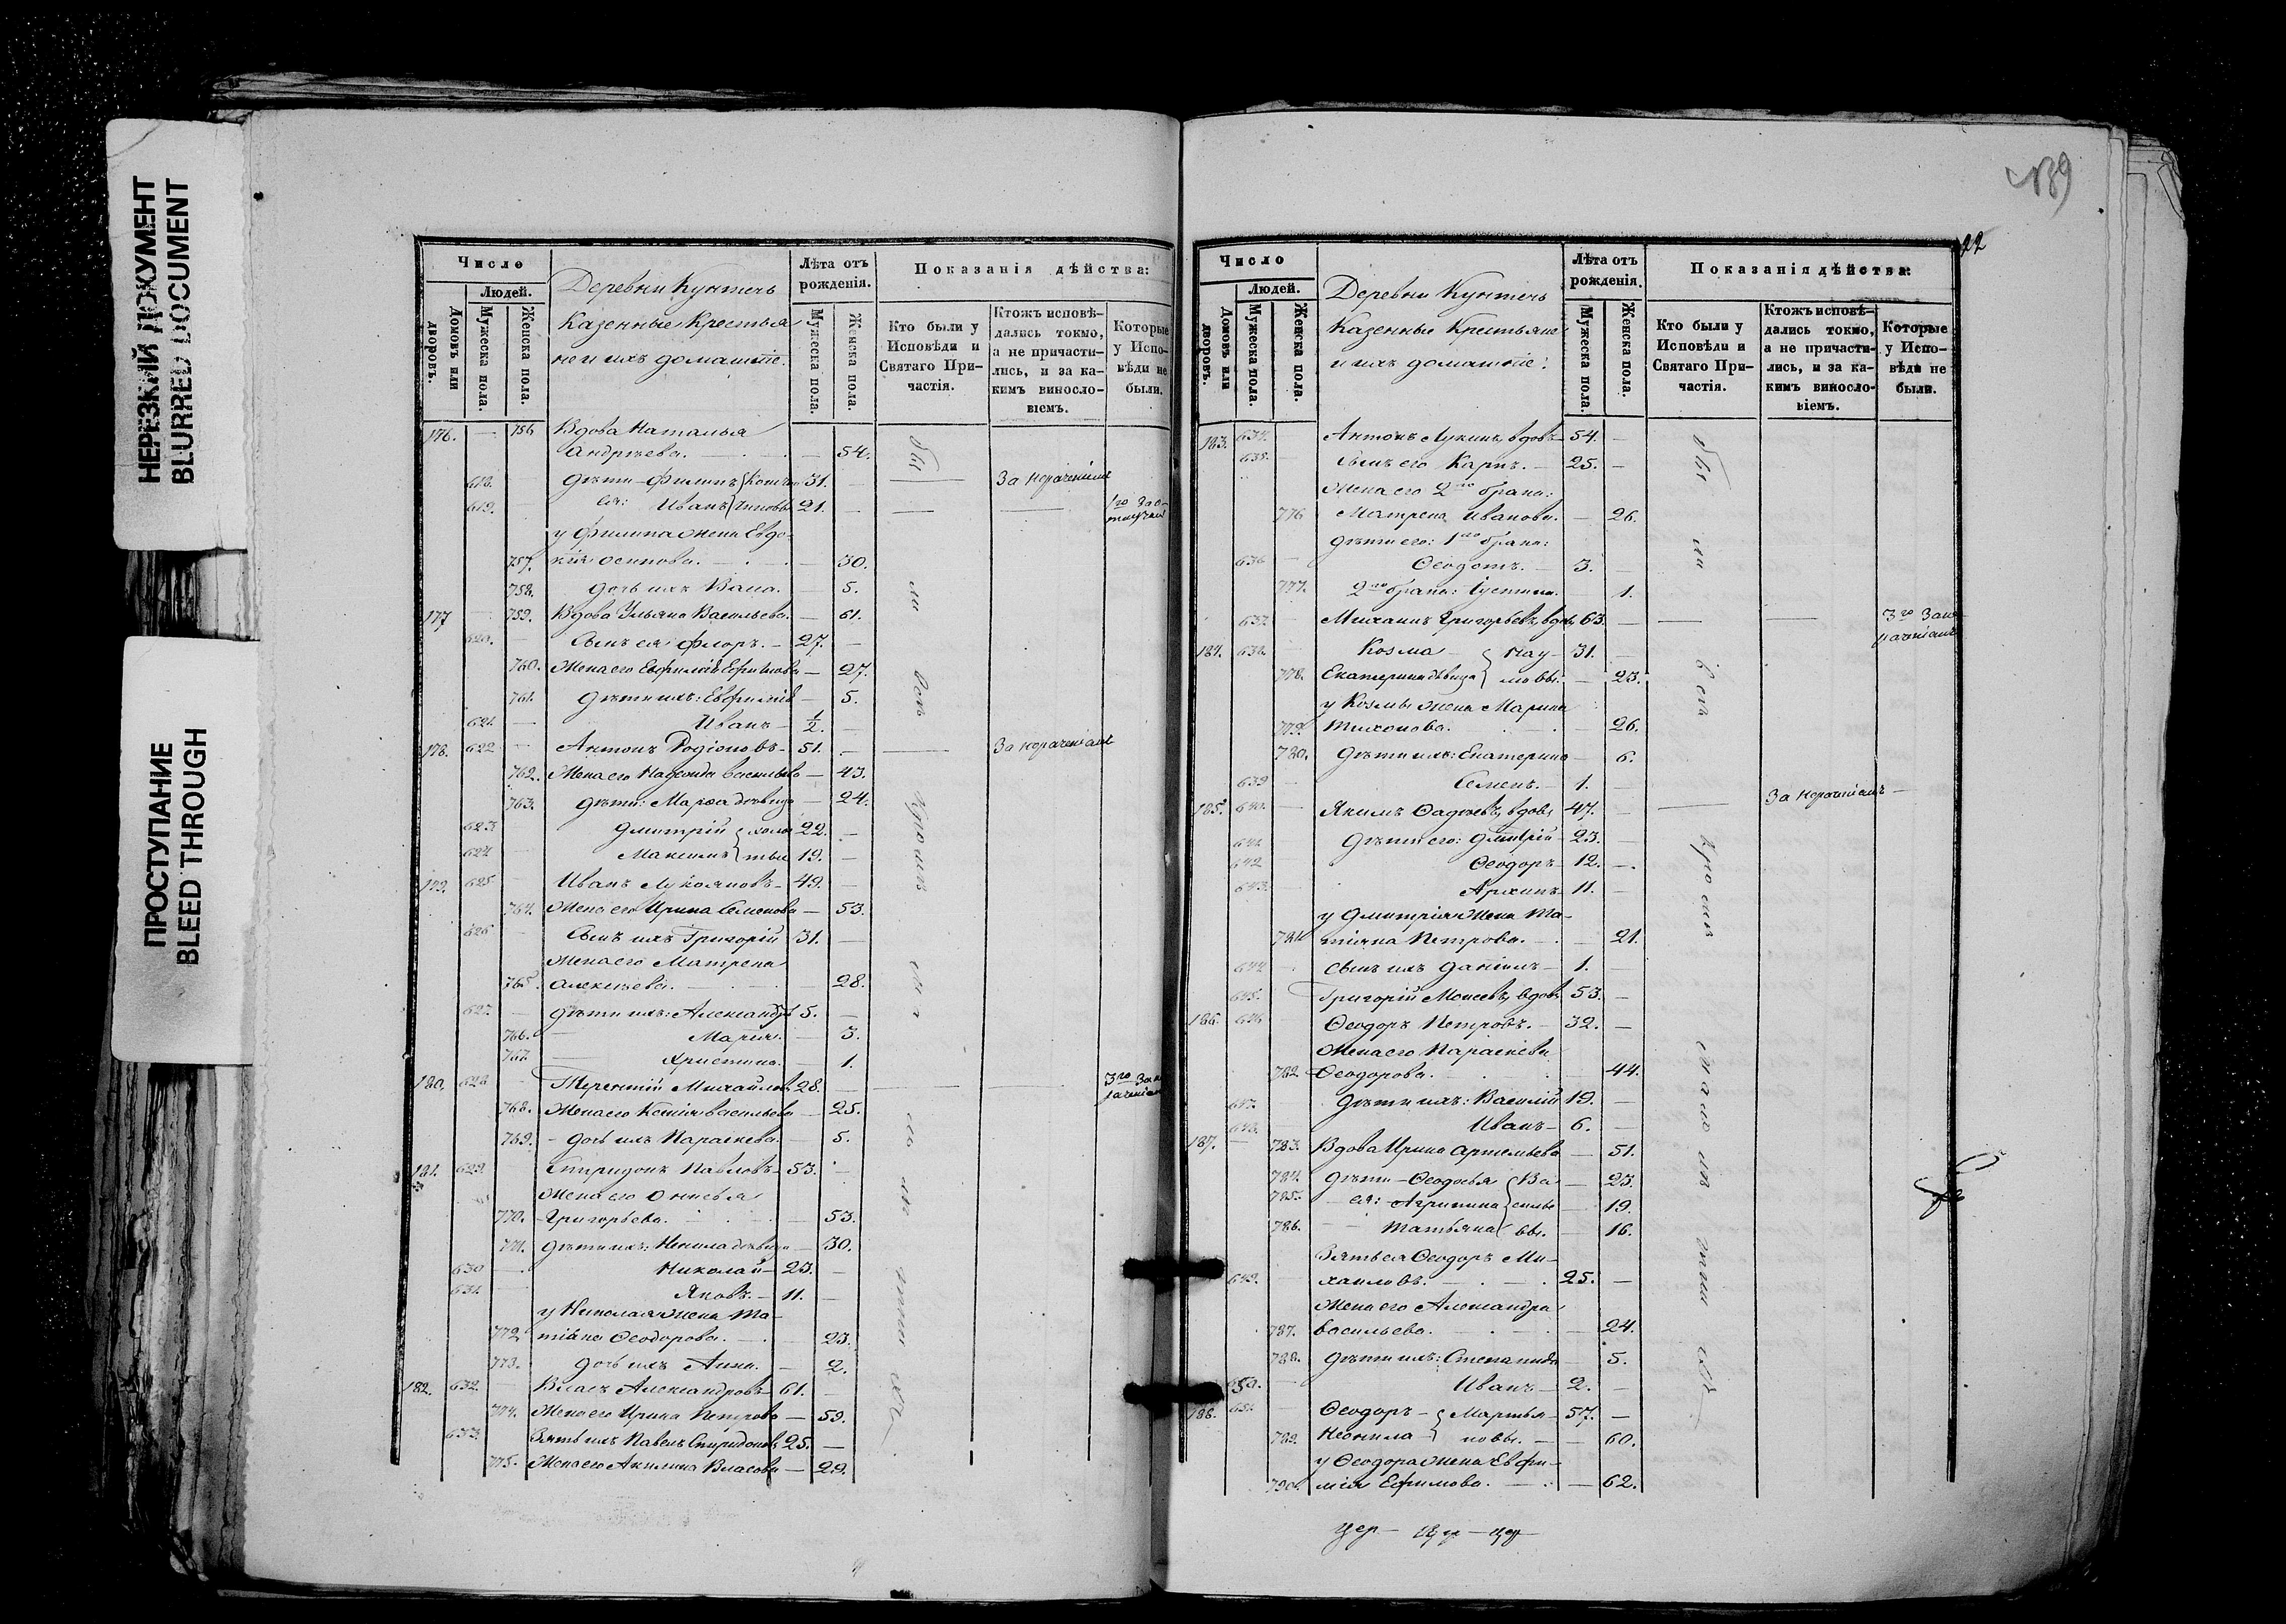 НЕРЕЗКИЙ ДОКУМЕНТ
BLURRED DOCUMENT
ПРОСТУПАНИЕ
BLEED THROUGH
Число
Людей.
Домовъ или дворовъ.
Мужеска пола.
Женска пола.
Деревни Кунтечь
Казенные Крестья
не и ихъ домашніе.
Лѣта отъ рожденія.
Мужеска пола.
Женска пола.
Показанія дѣйства:
Кто были у Исповѣди и Святаго При-
частія.
Ктожъ исповѣ-
дались токмо,
а не причасти-
лись, и за ка-
кимъ виносло-
віемъ.
Которые
у Испо-
вѣди не
были.
176. — 756 Вдова Наталья
Андреева. — 54.
618. дѣти – Филипъ 31. — За нераченіемъ
619. ея: Иванъ 21. —
у Филипа жена Евдо-
757. кія Осипова. — 30.
758. дочь ихъ Васа. — 5.
177 759. Вдова Ульяна Васильева. — 61.
620. Сынъ ея Флоръ. — 27. —
760. Жена его Евфимія Ефимова — 27.
761. дѣти ихъ: Евфимія — 5.
621. Иванъ — ½. —
178. 622 Антонъ Родіоновъ — 51. — За нераченіемъ
762. Жена его Надежда Васильева — 43.
763. дѣти: Марѳа дѣвица — 24.
623 Дмитрій холос 22. —
624 Максимъ тые 19. —
179. 625 Иванъ Лукояновъ — 49. —
764. Жена его Ирина Семенова — 53.
626 Сынъ ихъ Григорій 31. —
Жена его Матрена
765. Алексѣева. — 28.
627. дѣти ихъ: Александръ 5. —
766. Марія. — 3.
767. Христина. — 1.
180. 628 Терентій Михайловъ 28. —
768. Жена его Ксенія Васильева — 25.
769. дочь ихъ Параскева. — 5.
181. 629. Спиридонъ Павловъ — 53. —
Жена его
770. Григорьева. — 53.
771. дѣти ихъ: Ненила дѣвица — 30.
630 Николай — 23. —
631. Яковъ. — 11. —
у Николая жена Та-
772. тіана Ѳеодорова. — 23.
773. дочь ихъ Анна. — 2.
182. 632. Власъ Александровъ — 61. —
774. Жена его Ирина Петрова — 59.
633. Зять ихъ Павелъ Спиридоновъ 25. —
775. Жена его Акилина Власова — 29.
22
Число
Людей.
Домовъ или дворовъ.
Мужеска пола.
Женска пола.
Деревни Кунтечь
Казенные Крестьяне
и ихъ домашніе:
Лѣта отъ рожденія.
Мужеска пола.
Женска пола.
Показанія дѣйства:
Кто были у Исповѣди и Святаго При-
частія.
Ктожъ исповѣ-
дались токмо,
а не причасти-
лись, и за ка-
кимъ виносло-
віемъ.
Которые
у Испо-
вѣди не
были.
183. 634. Антонъ Лукинъ, вдовъ 54. —
635. сынъ его Карпъ. — 25. —
Жена его 2го брака:
776 Матрена Иванова. — 26.
дѣти его: 1го брака:
636 Ѳеодотъ. — 3. —
777. 2го брака: Іустина. — 1.
637. Михаилъ Григорьевъ, вдовъ 63. —
184. 638. Козма Нау- 31. —
778. Екатерина дѣвица мовы. — 23.
у Козмы жена Марина
779. Тихонова. — 26.
780. дѣти ихъ: Екатерина — 6.
639 Семенъ. — 1. —
185. 640. Якимъ Ѳадѣевъ, вдовъ 47. — За нераченіемъ
641 дѣти его: Дмитрій — 23. —
642 Ѳеодоръ — 12. —
643. Архипъ 11. —
у Дмитрія жена Та-
781. тіяна Петрова. — 21.
644 сынъ ихъ Даніилъ — 1. —
645. Григорій Моисеевъ, вдовъ 53. —
186. 646 Ѳеодоръ Петровъ. — 32. —
Жена его Параскева
782. Ѳеодорова. 44.
647. дѣти ихъ: Василій 19. —
648. Иванъ — 6. —
187. — 783. Вдова Ирина Артемьева — 51.
784. дѣти – Ѳеодосья Ва — 23.
785. ея: Агрипина силье — 19.
786. Татьяна вы. — 16.
Зять ея Ѳеодоръ Ми-
649. хаиловъ. — 25. —
Жена его Александра
787. Васильева. — 24.
788. дѣти ихъ: Степанида — 5.
650. Иванъ — 2. —
188. 651. Ѳеодоръ — Мартья- 57. —
789. Неонила новы. — 60.
у Ѳеодора жена Евфи-
790. мія Ефимова. — 62.